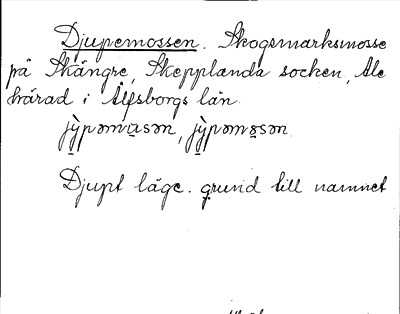 Djupemossen. Skogsmarksmosse
på Skängre, Skepplanda socken, Ale
härad i Älfsborgs län.
jỳ̱pəmu̱sən, jỳ̱pəmo̱sən
Djupt läge. grund till namnet